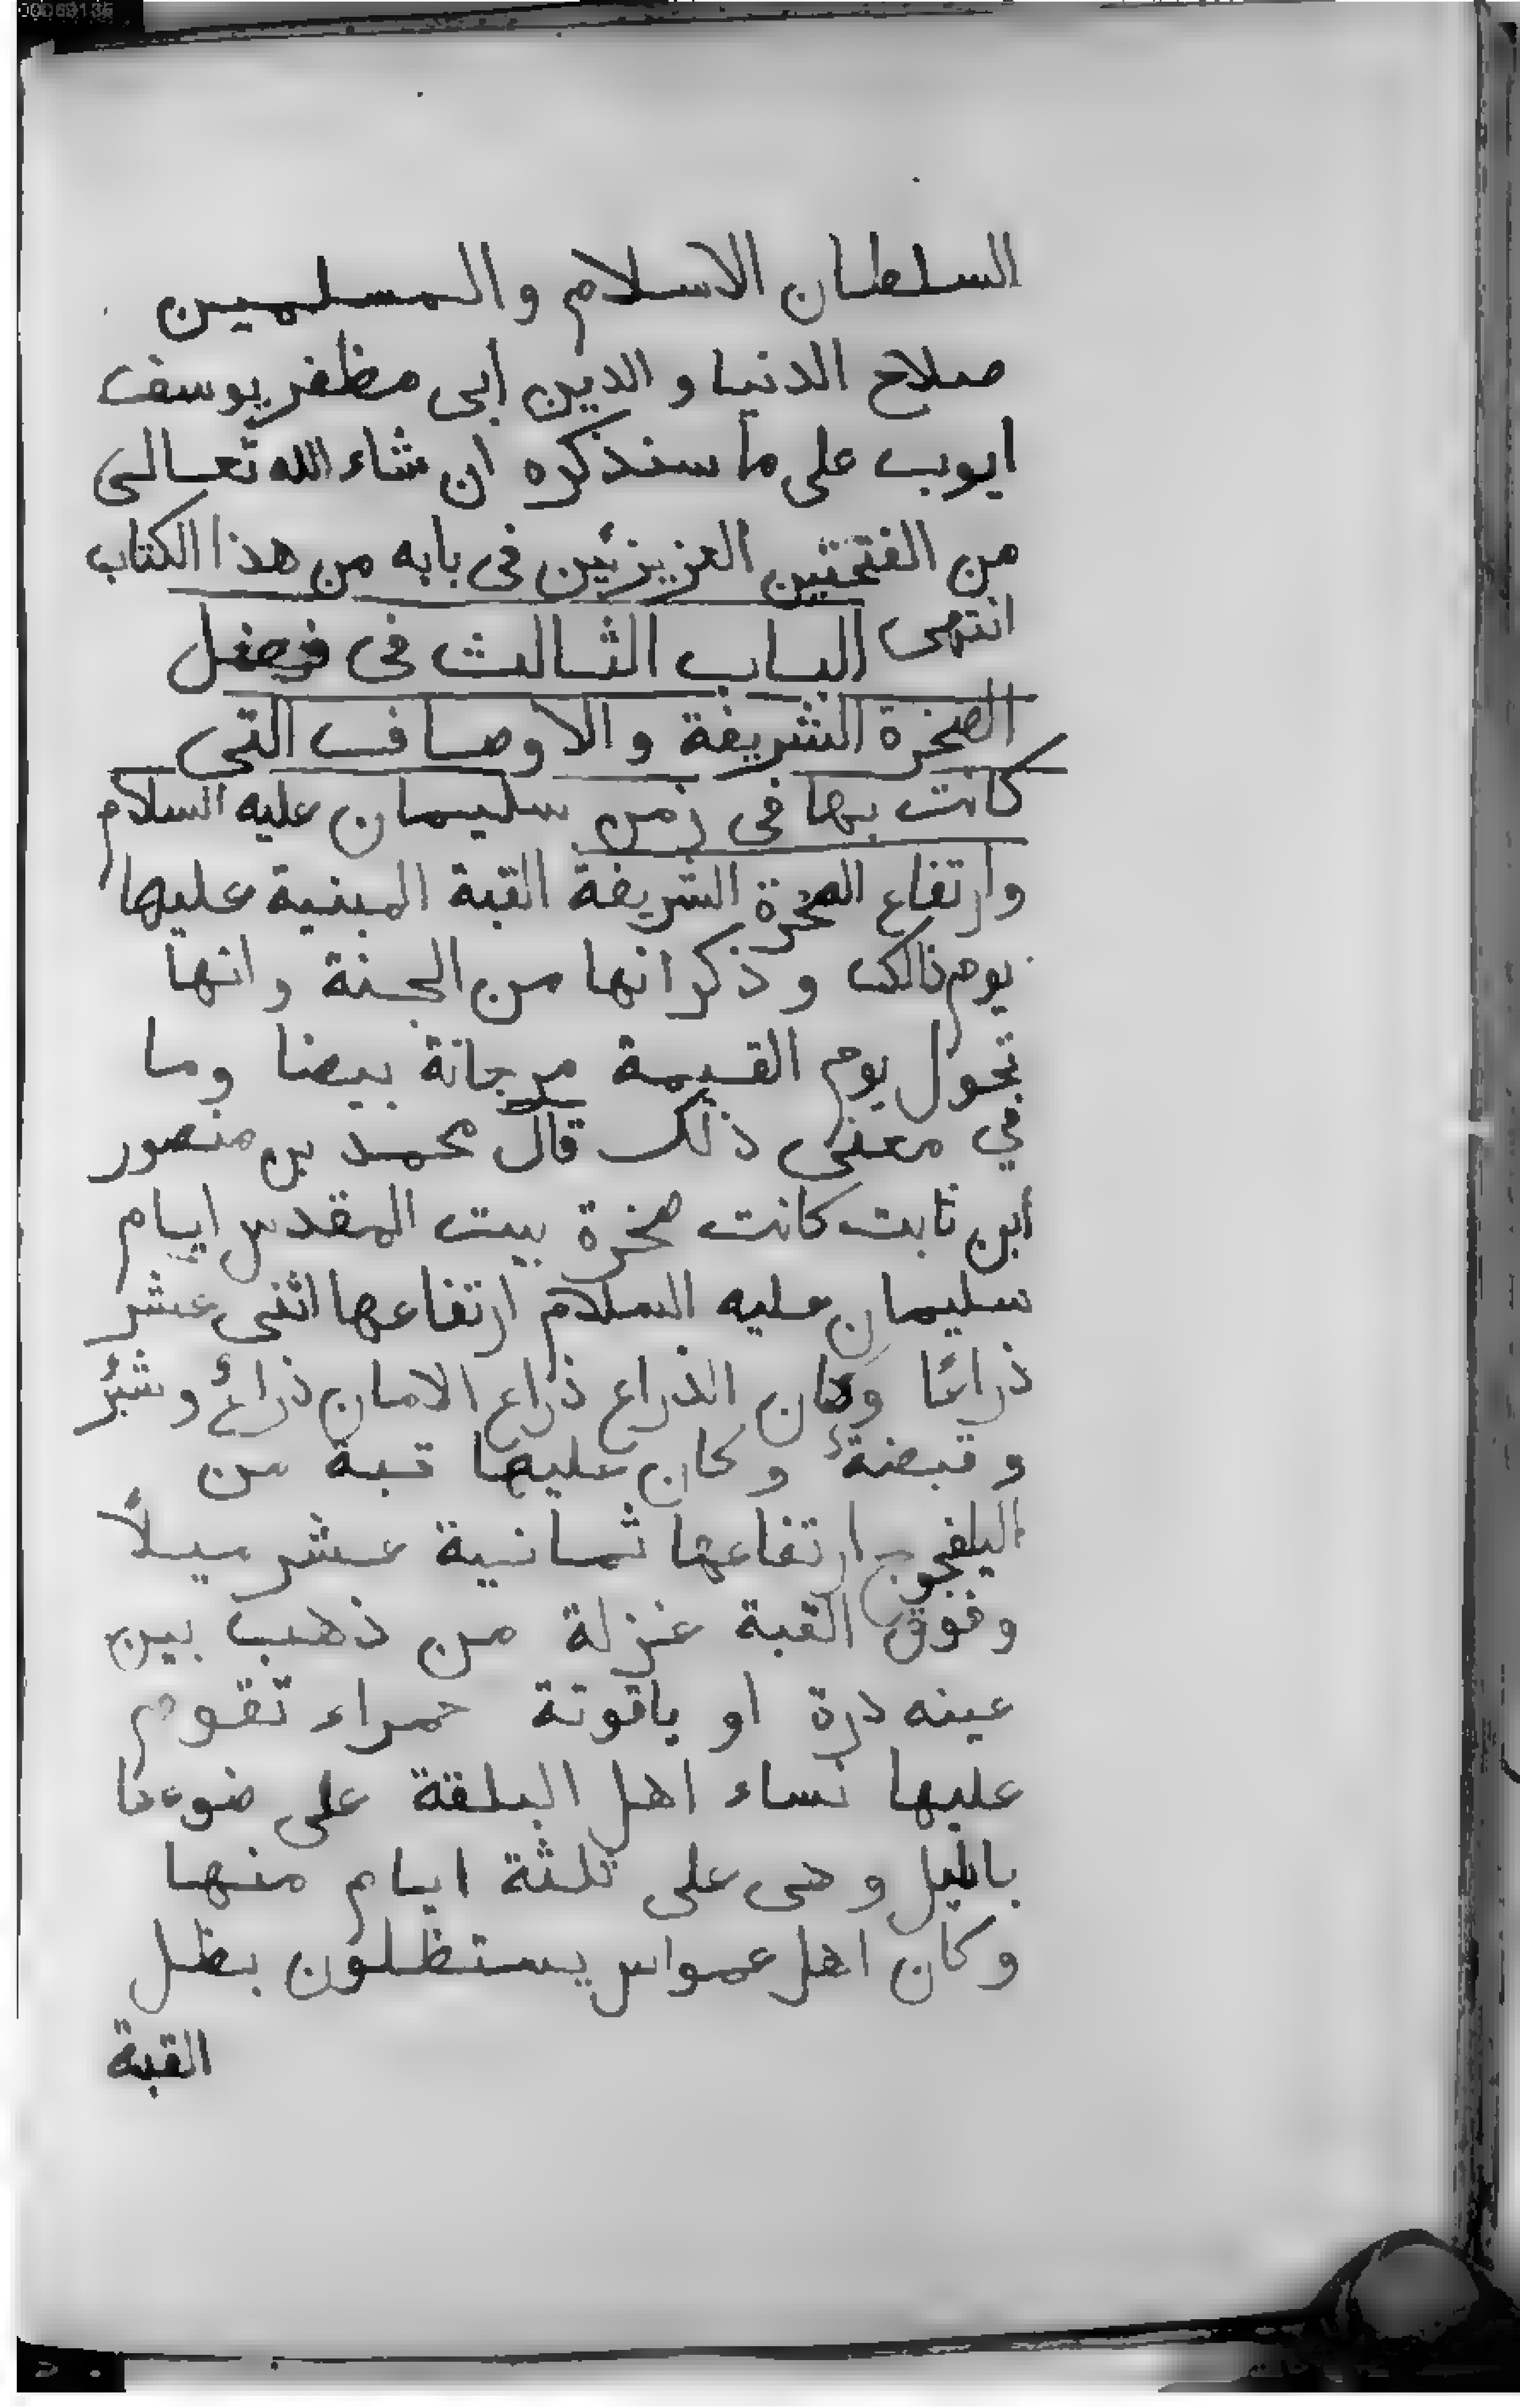 السلطان الاسلام والمسلمين
صلاح الدنيا و الدين أبى مظفر يوسف
ايوب على ما سنذكره ان شاء الله تعالى
من الفتحتين العزيزئين فى بابه من هذا الكتاب
انتهى الباب الثالث فى فضل
الصخرة الشريفة والاوصاف التى
كانت بها فى زمن سليمان عليه السلام
وارتفاع الصخرة الشريفة القبة المبنية عليها
يوم ذالك وذكر انها من الجنة وانها
تحول يوم القيمة مرجانة بيضا وما
في معنى ذلك قال محمد بن منصور
أبن ثابت كانت صخرة بيت المقدس ايام
سليمان عليه السلام ارتفاعها اثنى عشر
ذراعًا وكان الذراع ذراع الامان ذراعٌ وشبْرٌ
و قبضةٌ وكان عليها قبة من
اليلفجوج ارتفاعها ثمانية عشر ميلاً
وفوق القبة غزلة من ذهب بين
عينه درة او ياقوتة حمراء تقوم
عليها نساء اهل البلقة على ضوءها
بالليل وهى على ثلثة ايام منها
وكان اهل عمواس يستظلون بظل
القبة